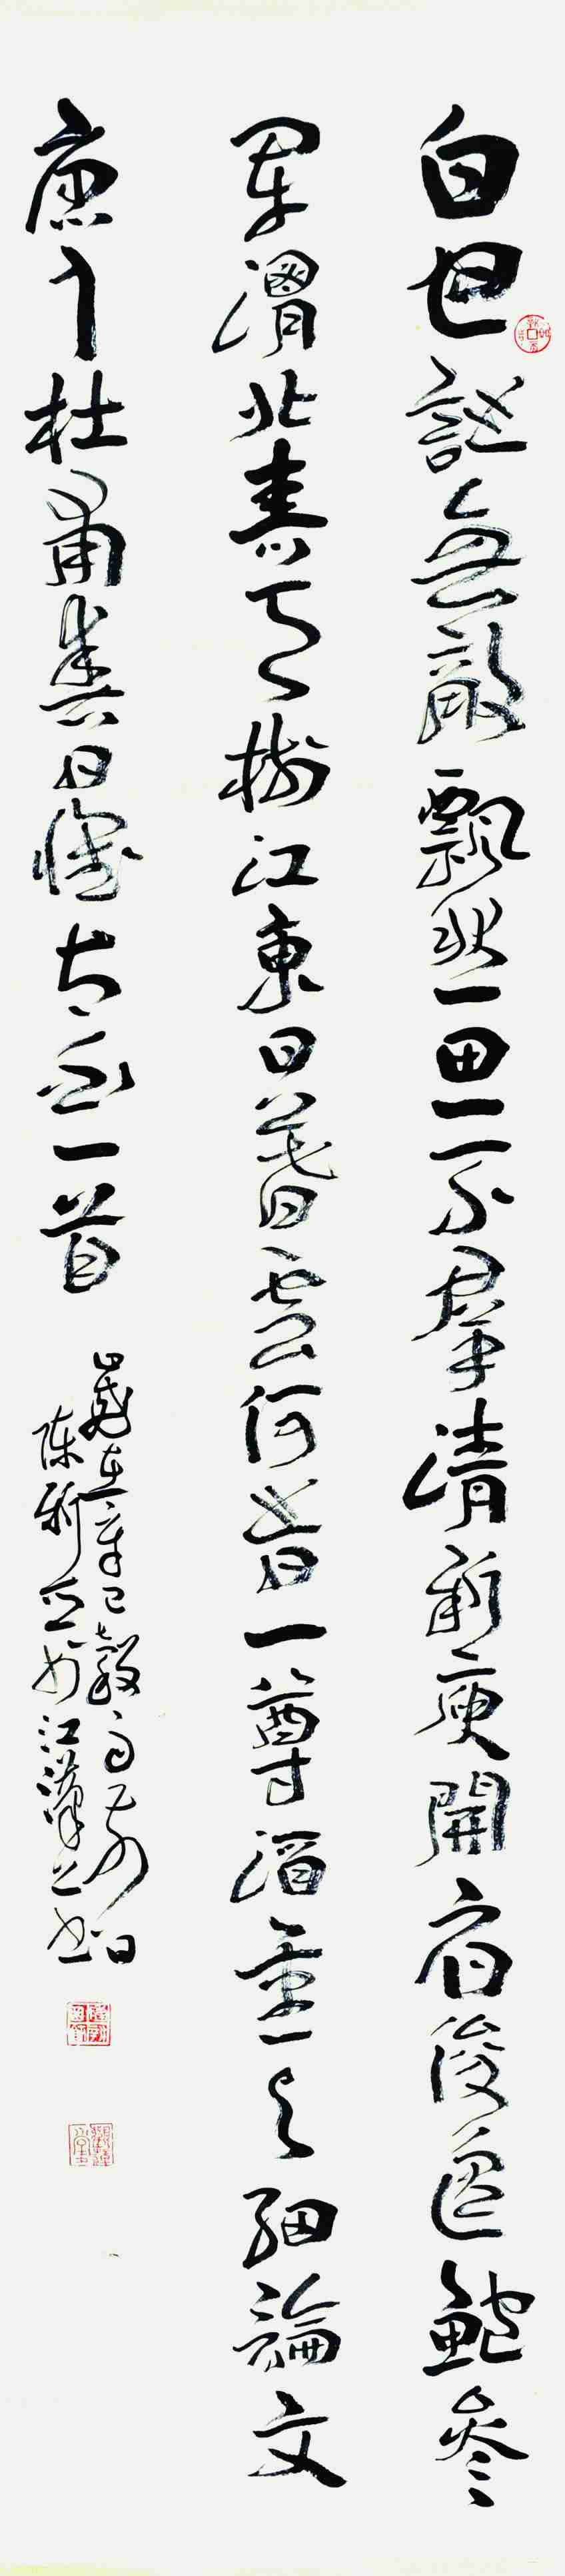 白也詩無敵飄然思不羣清新庾開府俊逸鮑參
軍渭北春天樹江東日暮雲何時一尊酒重與細論文
唐人杜甫春日憶太白一首
歲在辛巳穀雨前日
陳新亞於江漢